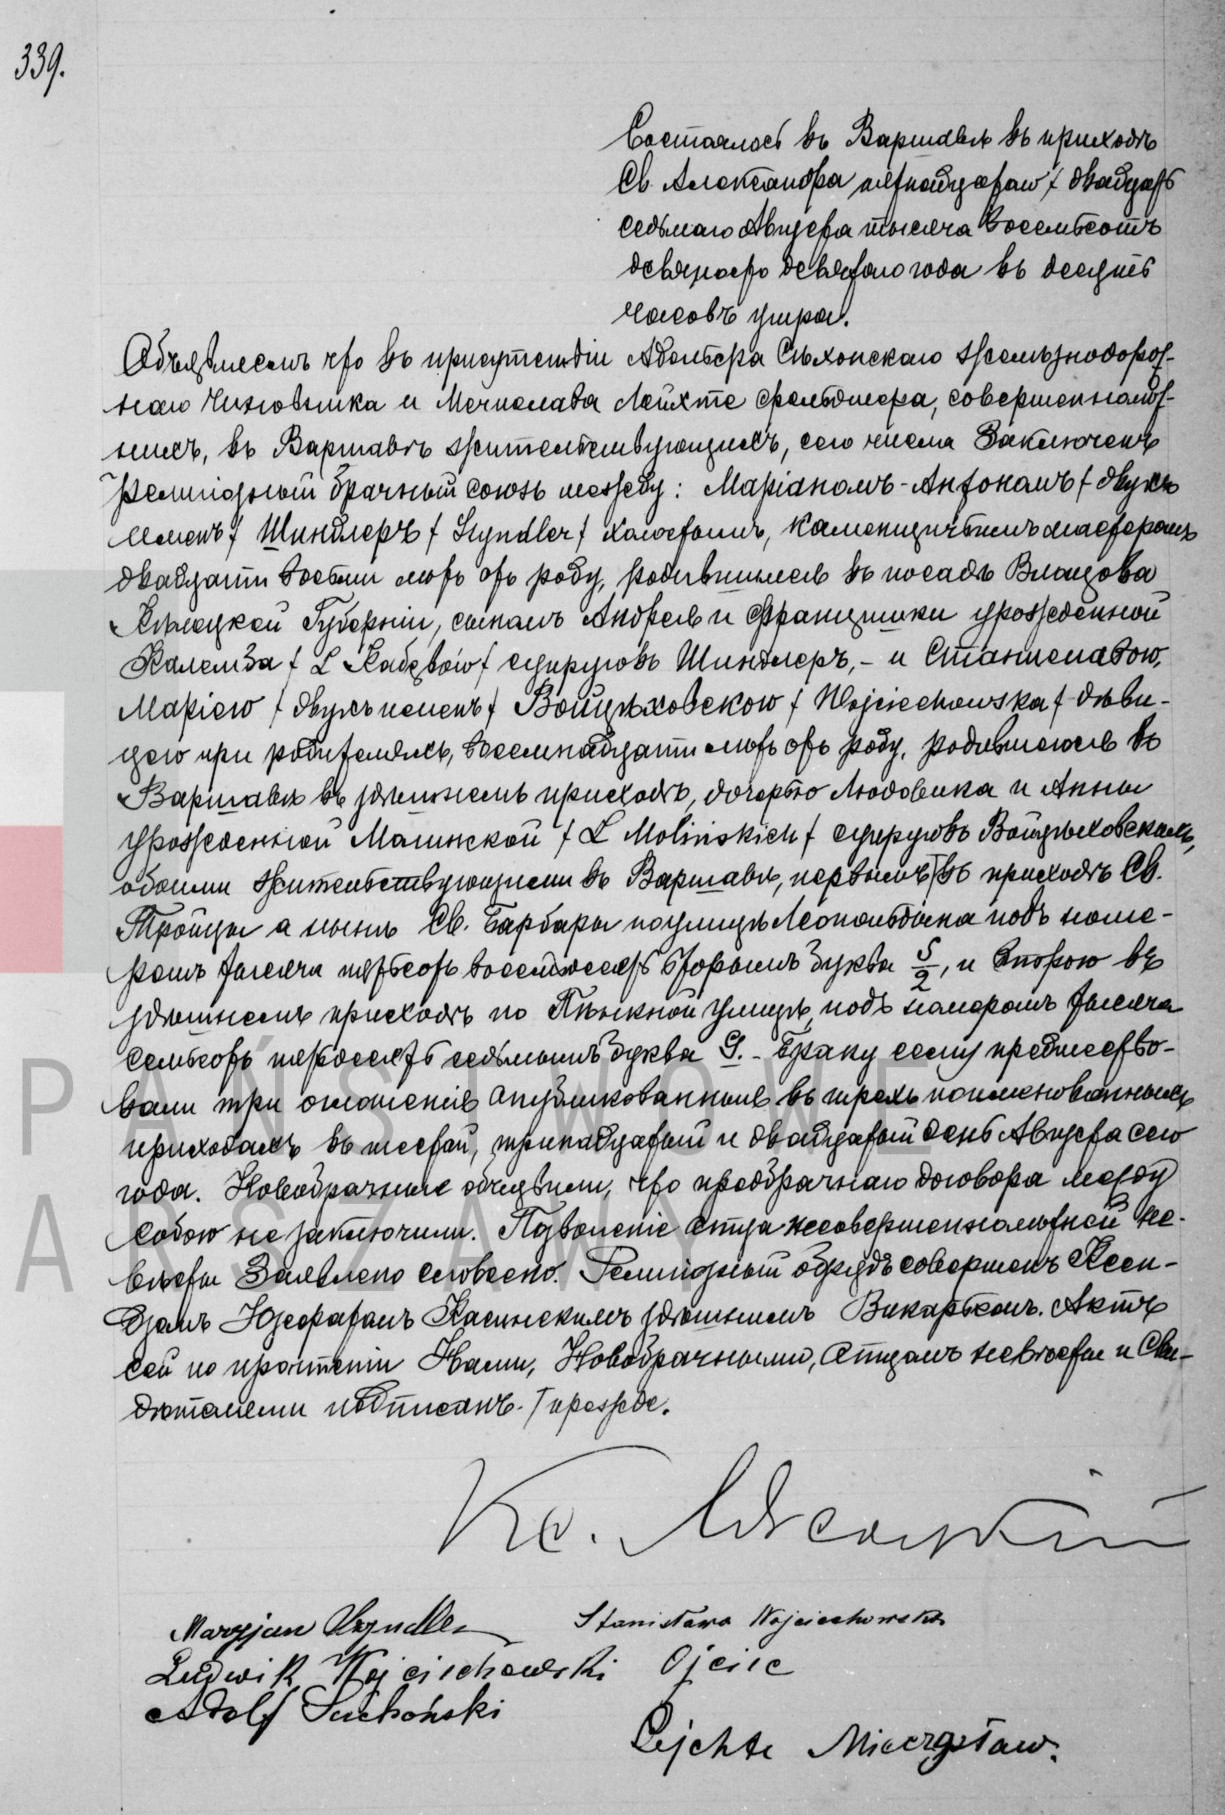 339.
Состоялось въ Варшавѣ въ приходѣ
Св. Александра пятнадцатаго / двадцать
седьмаго Августа тысяча восемьсотъ
девяносто девятаго года въ десять
часовъ утра.
Объявляемъ что въ присутствіи Адольфа Сухонскаго желѣзнодорож-
наго чиновника и Мечислава Лейхте фельдшера, совершеннолѣт-
нихъ, въ Варшавѣ жительствующихъ, сего числа заключенъ
религіозный брачный союзъ между: Маріаномъ-Антономъ / двухъ
именъ / Шиндлеръ / Szyndler / холостымъ, каменщичьимъ мастеромъ
двадцати восьми лѣтъ отъ роду, родившимся въ посадѣ Влащова
Кѣлецкой Губерніи, сыномъ Андрея и Францишки урожденной
/ супруговъ Шиндлеръ, - и Станиславою,
Маріею / двухъ именъ / Войцѣховскою / Wojciechowska / дѣви-
цею при родителяхъ, восемнадцати лѣтъ отъ роду, родившеюся въ
Варшавѣ въ здѣшнемъ приходѣ, дочерью Людовика и Анны
урожденной Малинской / Z Molińskich / супруговъ Войцѣховскихъ,
обоими жительствующими въ Варшавѣ, первымъ въ приходѣ Св.
Тройцы а нынѣ Св. Барбары по улицѣ Леопольдина подъ номе-
ромъ тысяча пятьсотъ восемьдесятъ вторымъ буква S/2, и второю въ
здѣшнемъ приходѣ по Пѣнкной улицѣ, подъ номеромъ тысяча
семьсотъ пятьдесятъ седьмымъ буква G. - Браку сему предшество-
вали три оглашенія опубликованныя въ трехъ поименованныхъ
приходахъ въ шестой, тринадцатый и двадцатый день Августа сего
года. Новобрачные объявили, что предбрачнаго договора между
собою не заключили. Позволеніе отца несовершеннолѣтней не-
вѣсты заявлено словесно. Религіозный обрядъ совершенъ Ксен-
дзомъ Юзефатомъ Касинскимъ здѣшнимъ Викаріемъ. Актъ
сей по прочтеніи Нами, Новобрачными, отцомъ невѣсты и Сви-
дѣтелями подписанъ. / прежде.
Кс.
Maryjan Szyndler Stanisława Wojciechowska
Ludwik Wojciechowski Ojciec
Adolf Suchoński
Lejchte Mieczysław.
PAŃSTWOWE
ARSZAWY